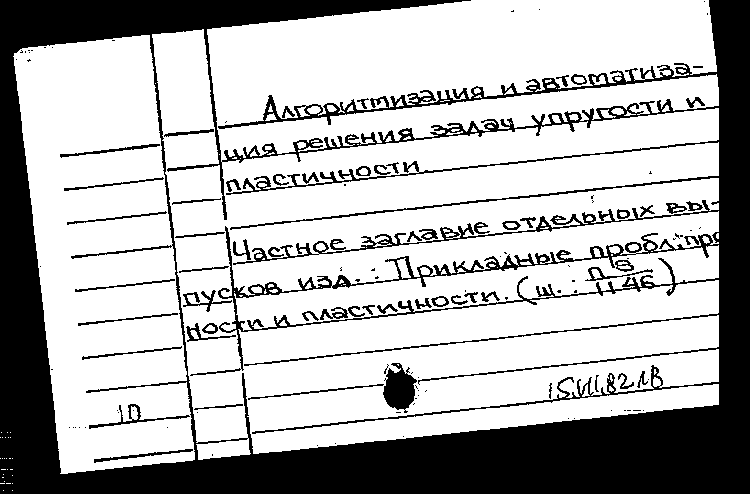 Алгоритмизация и автоматиза-
ция решения задач упругости и
пластичности.
Частное заглавие отдельных вы-
пусков изд.: Прикладные пробл. проч
ности и пластичности. (ш.: П 8
1146)
10
15.VII.82 ЛВ